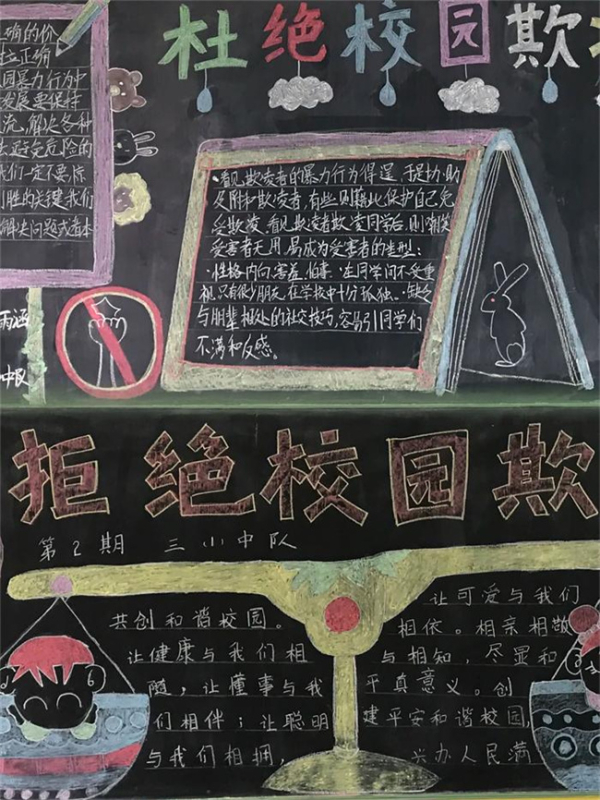 杜绝校园欺
确的价
正确
同暴力行为中
发展要保持
流,解决各种
免危险的
我们一定不要惊
胜的关键我们
解决问题或者本
雨涵
中队
·看见欺凌者的暴力行为得逞,于是协助
及附和欺凌者,有些则藉此保护自己免
受欺凌。看见欺凌者欺凌同学后,则嘲笑
受害者无用,易成为受害者的类型:
·性格内向、害羞、怕事·在同学间不受重
视,只有很少朋友,在学校中十分孤独。·缺乏
与朋辈相处的社交技巧,容易引同学们
不满和反感。
拒绝校园欺
第2期 三小中队
共创和谐校园。
让健康与我们相
随,让懂事与我
们相伴;让聪明
与我们相拥,
让可爱与我们
相依。相亲相敬
与相知,尽显和
平真意义。创
建平安和谐校园,
兴办人民满